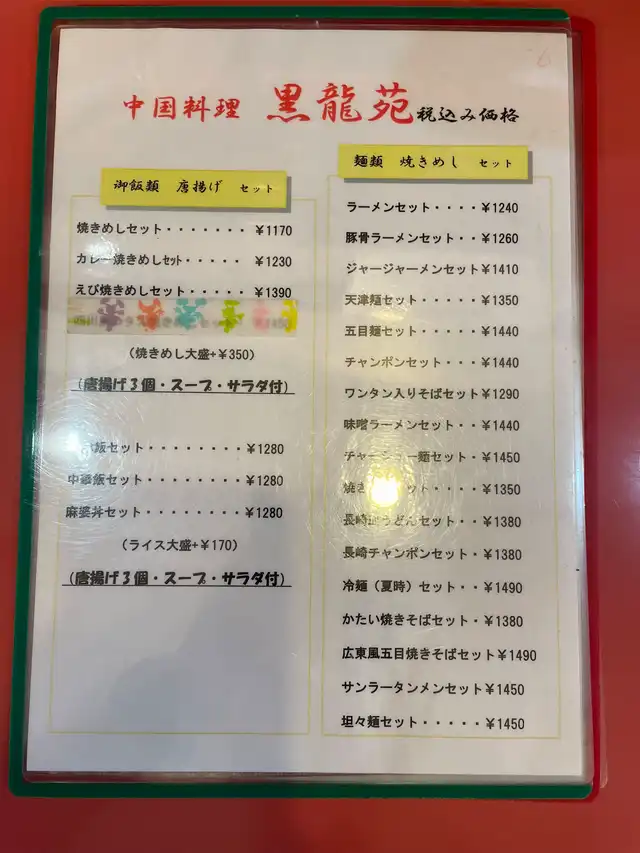 中国料理 黒龍苑 税込み価格
御飯類 唐揚げ セット
焼きめしセット・・・・・・・ ¥1170
カレー焼きめしセット・・・・・ ¥1230
えび焼きめしセット・・・・・ ¥1390
(焼きめし大盛+¥350)
(唐揚げ3個・スープ・サラダ付)
飯セット・・・・・・・・・¥1280
中華飯セット・・・・・・・・¥1280
麻婆丼セット・・・・・・・・¥1280
(ライス大盛+¥170)
(唐揚げ3個・スープ・サラダ付)
麺類 焼きめし セット
ラーメンセット・・・・¥1240
豚骨ラーメンセット・・¥1260
ジャージャーメンセット¥1410
天津麺セット・・・・・¥1350
五目麺セット・・・・・¥1440
チャンポンセット・・・¥1440
ワンタン入りそばセット¥1290
味噌ラーメンセット・・¥1440
チャーシュー麺セット・¥1450
焼き ット・・・・¥1350
長崎皿うどんセット・・¥1380
長崎チャンポンセット・¥1380
冷麺(夏時)セット・・¥1490
かたい焼きそばセット・¥1380
広東風五目焼きそばセット¥1490
サンラータンメンセット¥1450
坦々麺セット・・・・・¥1450